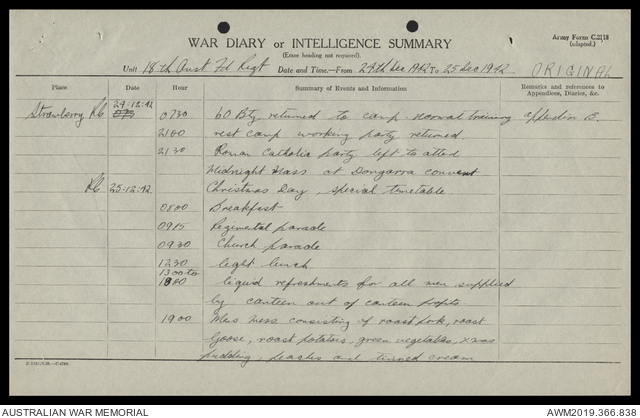 Army Form C.2118
(adapted.)
WAR DIARY or INTELLIGENCE SUMMARY
(Erase heading not required).
Unit 18th Aust Fd Regt Date and Time.—From 24th Dec 1942 To 25 Dec 1942 ORIGINAL
Place Date Hour Summary of Events and Information Remarks and references to Appendices, Diaries, &c.
Strawberry 24.12.42 0730 60 Bty returned to camp. normal training appendix B.
2100 rest camp working party returned.
2130 Roman Catholic party left to attend
Midnight Mass at Dongarra convent
25.12.42 Christmas Day, special timetable
0800 Breakfast
0915 Regimental parade
0930 Church parade
1230 light lunch
1300 to
1800 liquid refreshments for all men supplied
by canteen out of canteen profits.
1900 Mens mess consisting of roast pork, roast
Goose, roast potatoes, green vegetables, xmas
pudding, peaches and tinned cream
AUSTRALIAN WAR MEMORIAL AWM2019.366.838